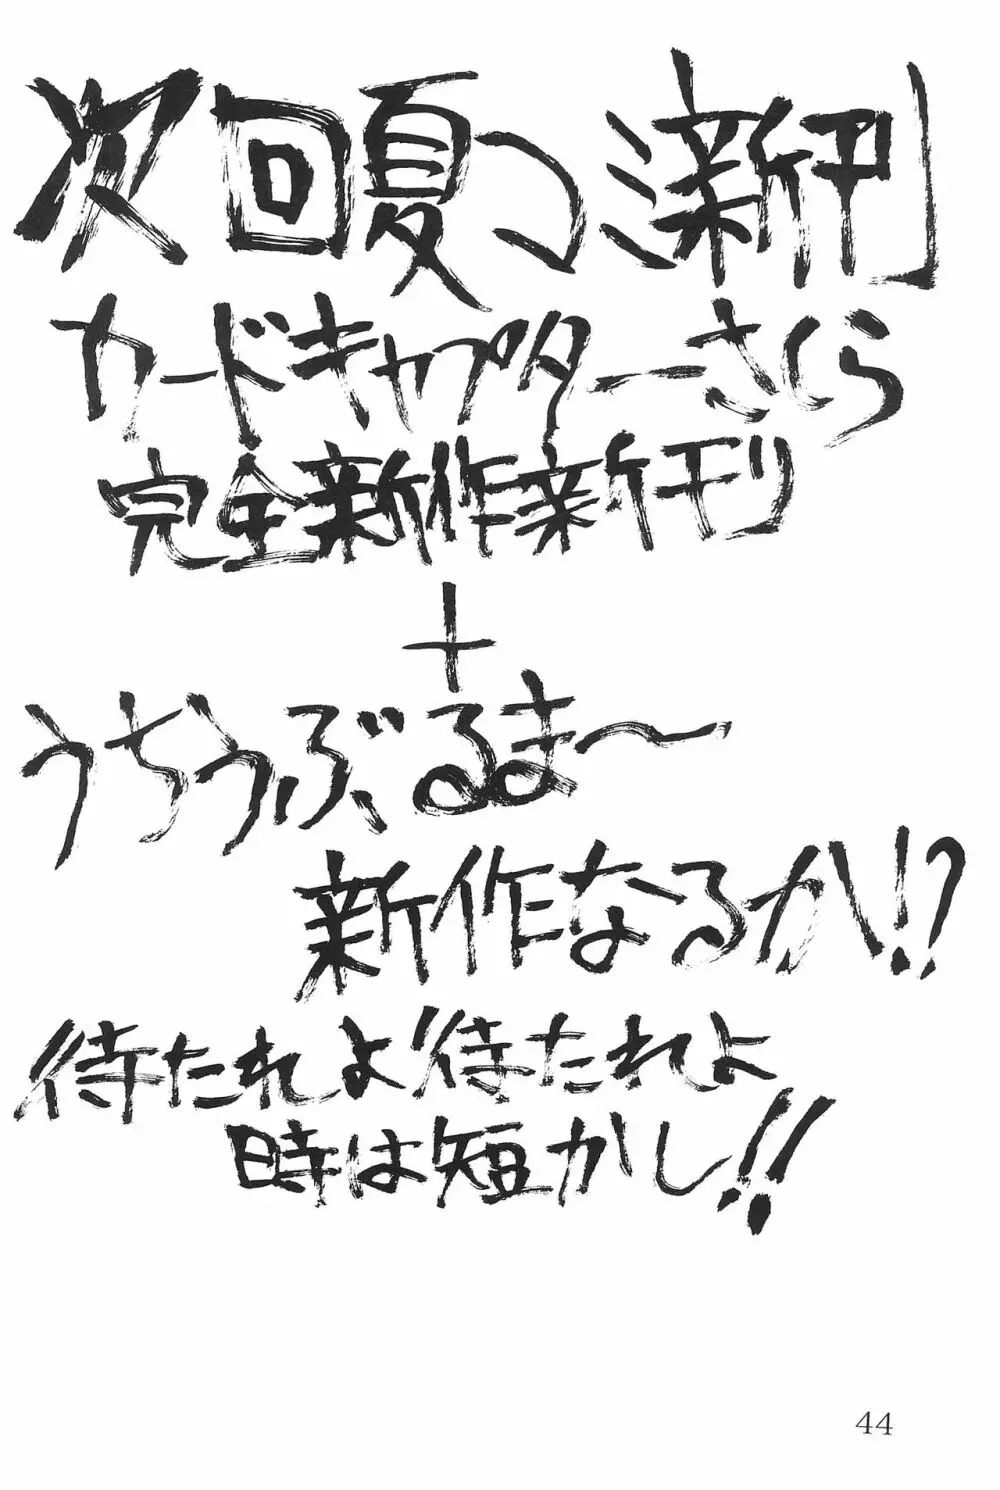 次回夏コミ新刊
カードキャプターさくら
完全新作新刊
+
うちうぶるま〜
新作なるか!?
待たれよ待たれよ
時は短かし!!
44